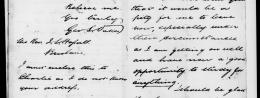 Believe me
Geo
Geo
Rev. J.
I must enclose this to
Charles as I do not know
your address.
that it would be a
pity for me to leave
now, especially under
these circumstances
as I am getting on well
and have now a good
opportunity to study for
anything.
I should be glad